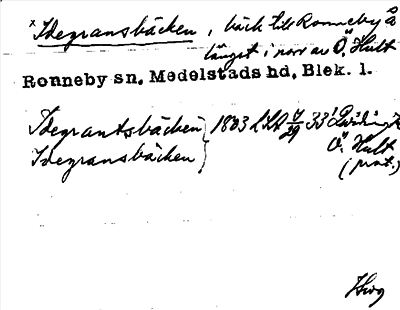 × Idegransbäcken, bäck till Ronneby å
längst i norr av Ö. Hult
Ronneby sn. Medelstads hd, Blek. l.
Idegrantsbäcken } 1883 LSA
Idegransbäcken } Ö. Hult
(prot.)